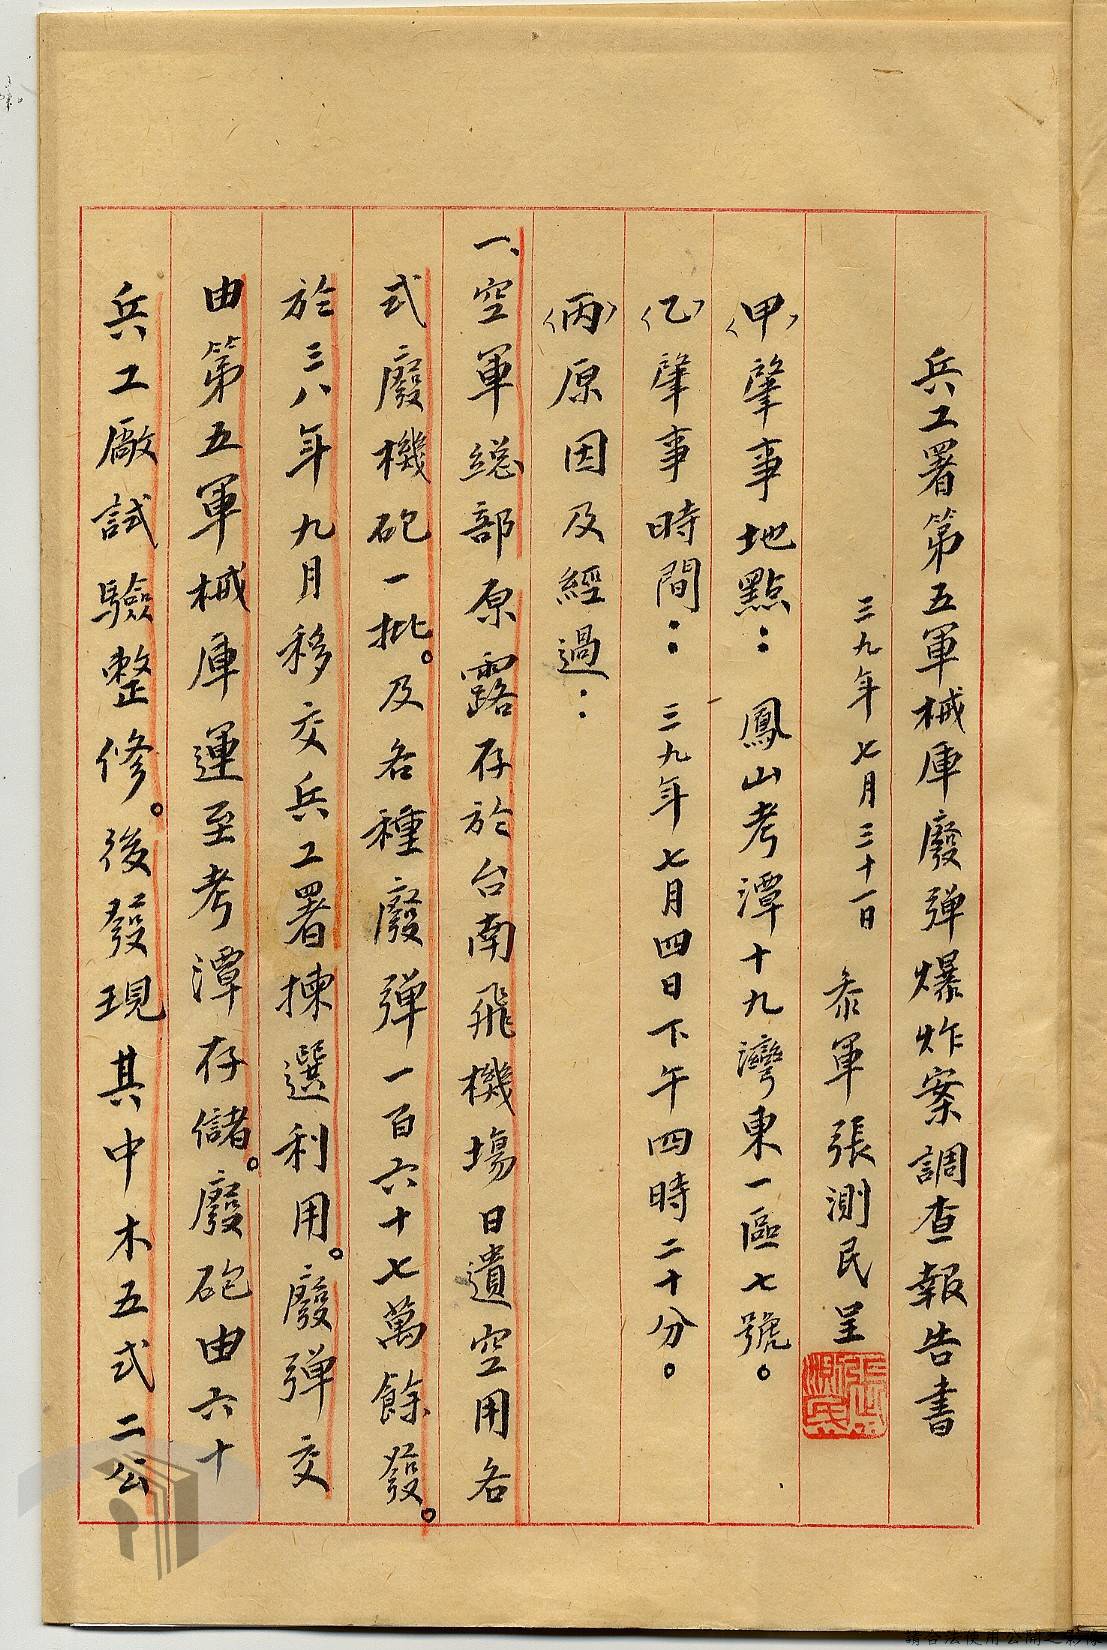 兵工署第五軍械庫廢弹爆炸案調查報告書
三九年七月三十一日 叅軍張測民呈
張測民
〈甲〉肇事地點：鳳山考潭十九灣東一區七號。
〈乙〉肇事時間：三九年七月四日下午四時二十分。
〈丙〉原因及經過：
一、空軍総部原露存於台南飛機場日遺空用各
式廢機砲一批。及各種廢弹一百六十七萬餘發。
於三八年九月移交兵工署揀選利用。廢弹交
由第五軍械庫運至考潭存儲。廢砲由六十
兵工廠試驗整修。後發現其中木五式二公
請合法使用公開之影像